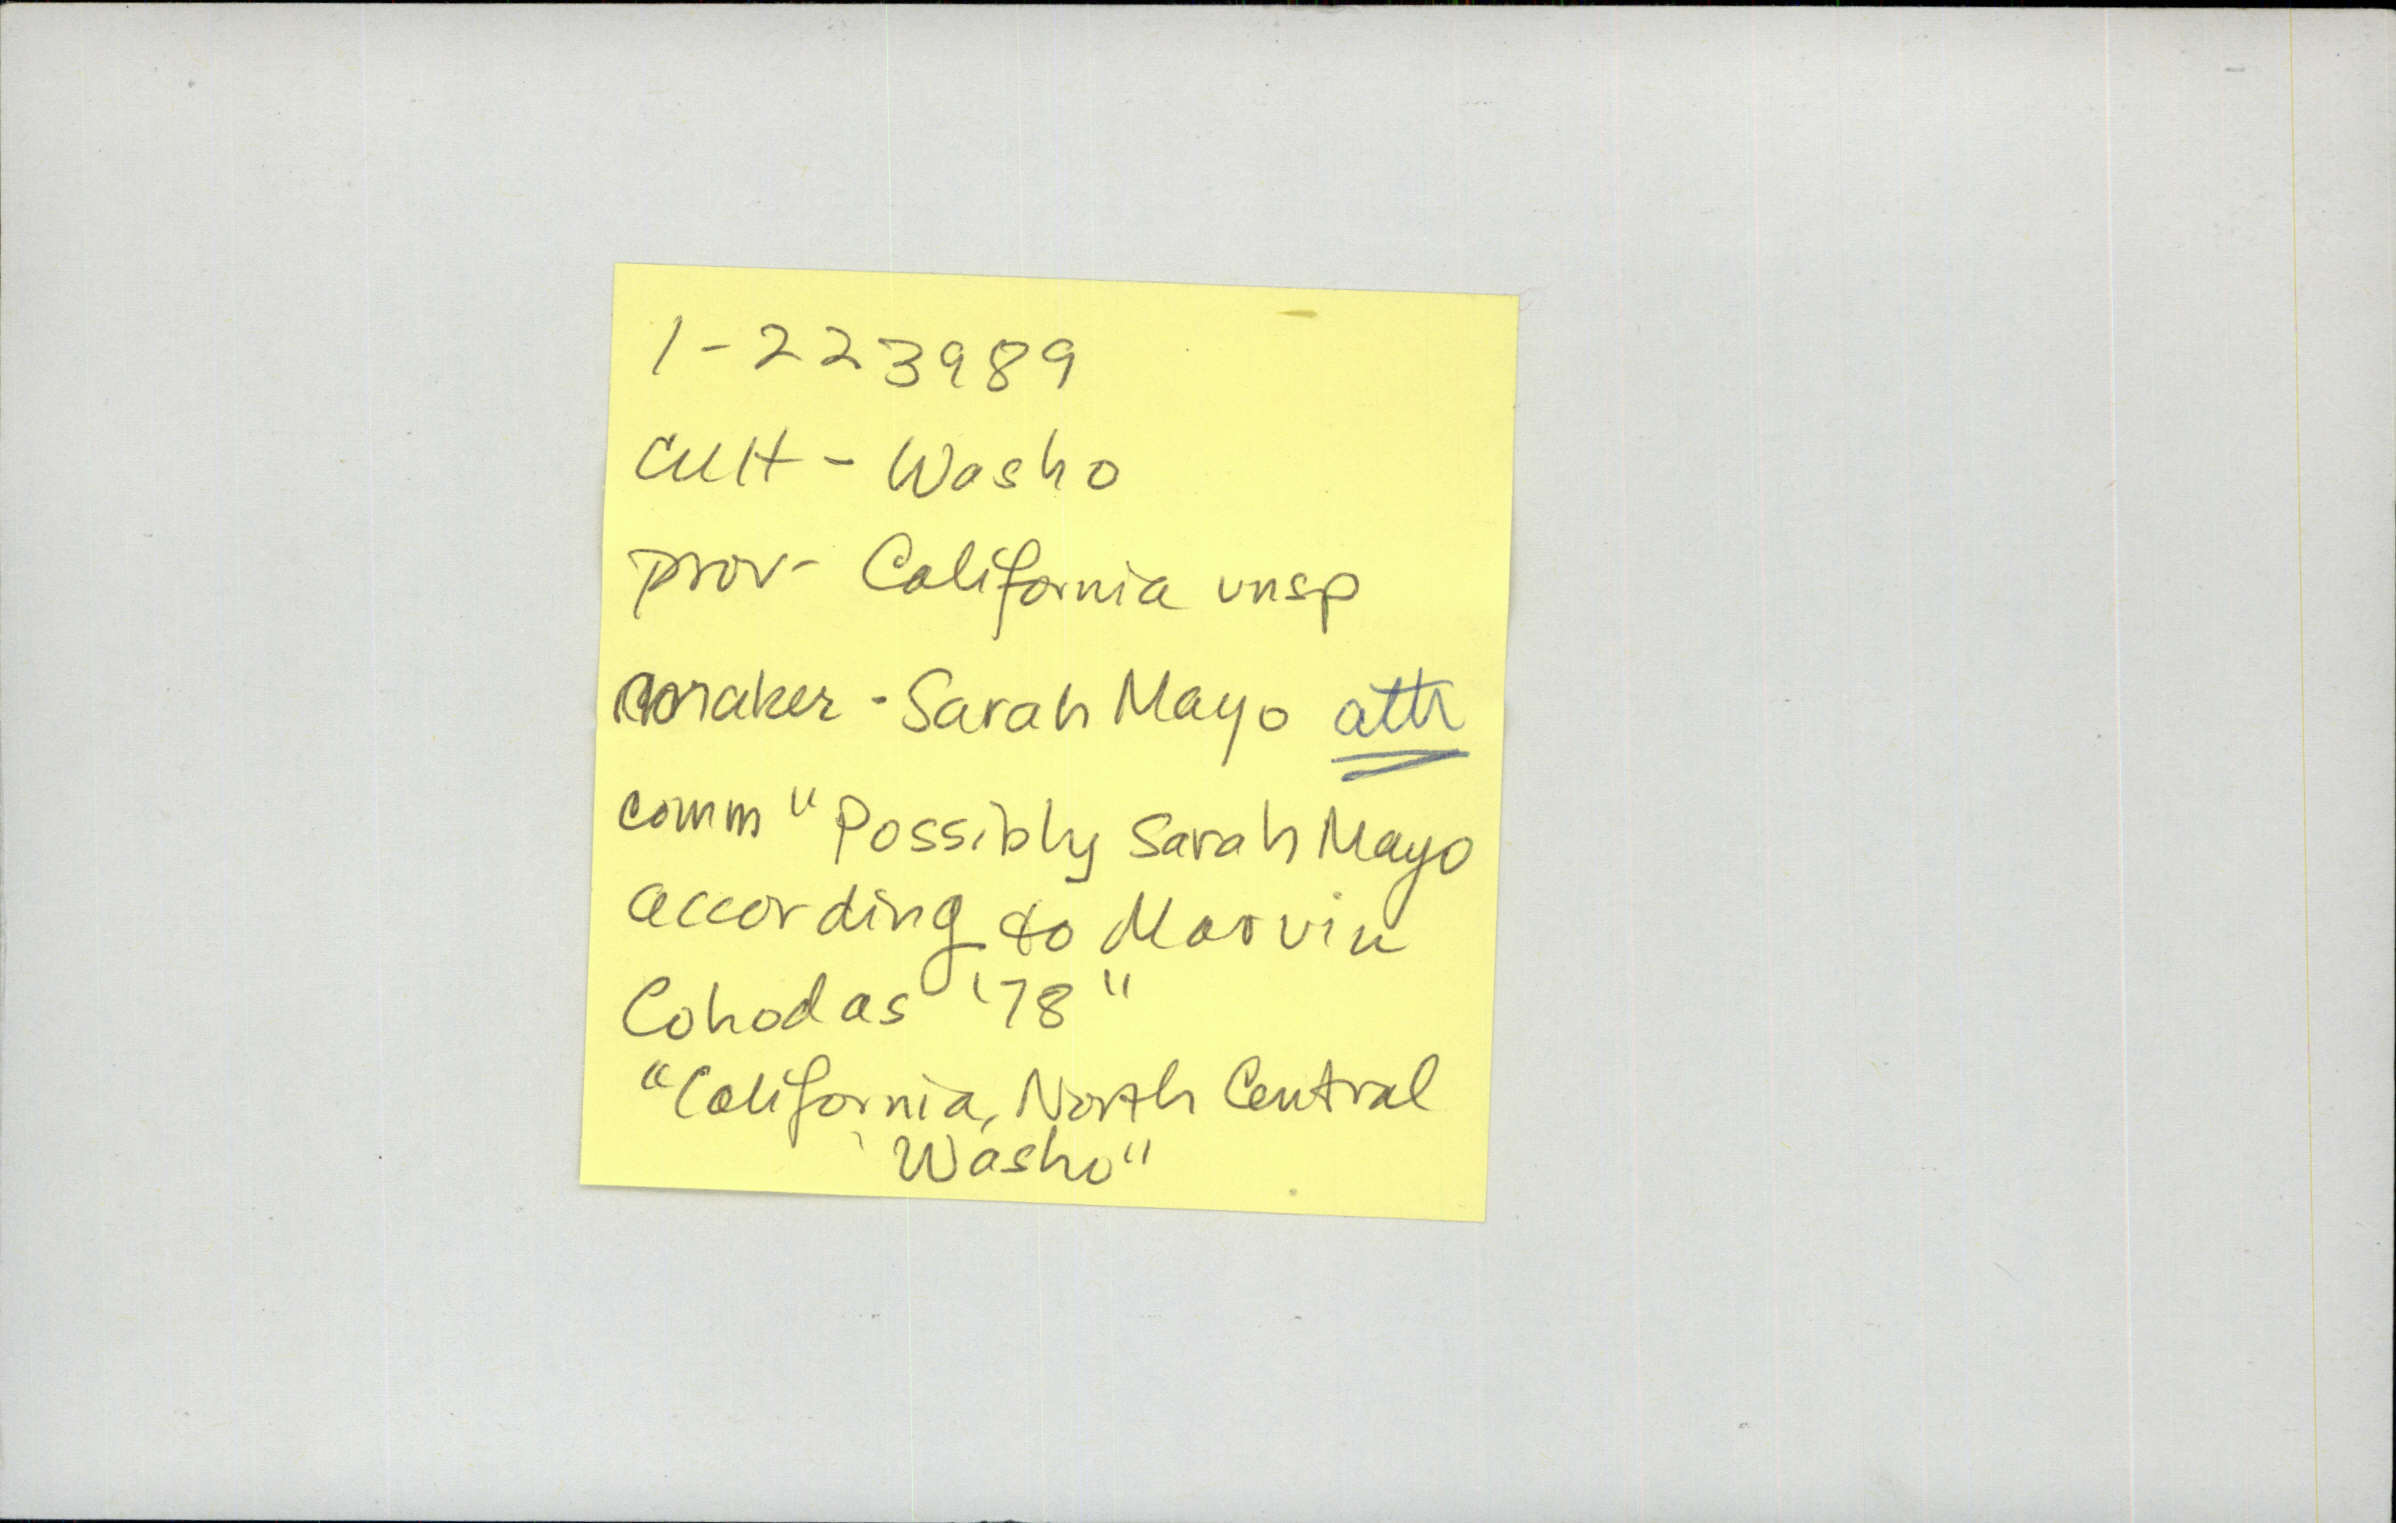 1-223989
cult - Washo
prov - California unsp
maker - Sarah Mayo attr
comm "Possibly Sarah Mayo
according to Marvin
Cohodas '78"
"California, North Central
Washo"